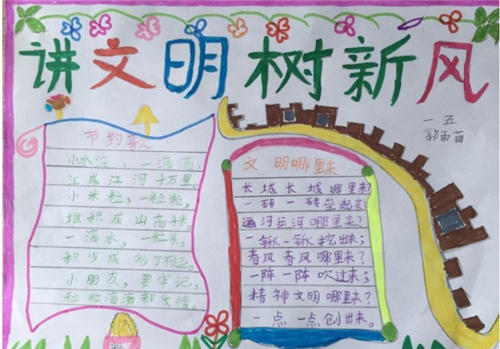 讲文明树新风
一五
郭雨苗
节约歌
小水滴，一滴滴，
汇成江河十万里。
小米粒，一粒粒，
堆积成山高千米。
一滴水，一粒米，
积少成多了不起。
小朋友，要牢记，
粒粒滴滴都爱惜。
文明哪里来
长城长城哪里来？
一砖一砖垒起来；
运河运河哪里来？
一锹一锹挖出来；
春风春风哪里来？
一阵一阵吹过来；
精神文明哪里来？
一点一点创出来。